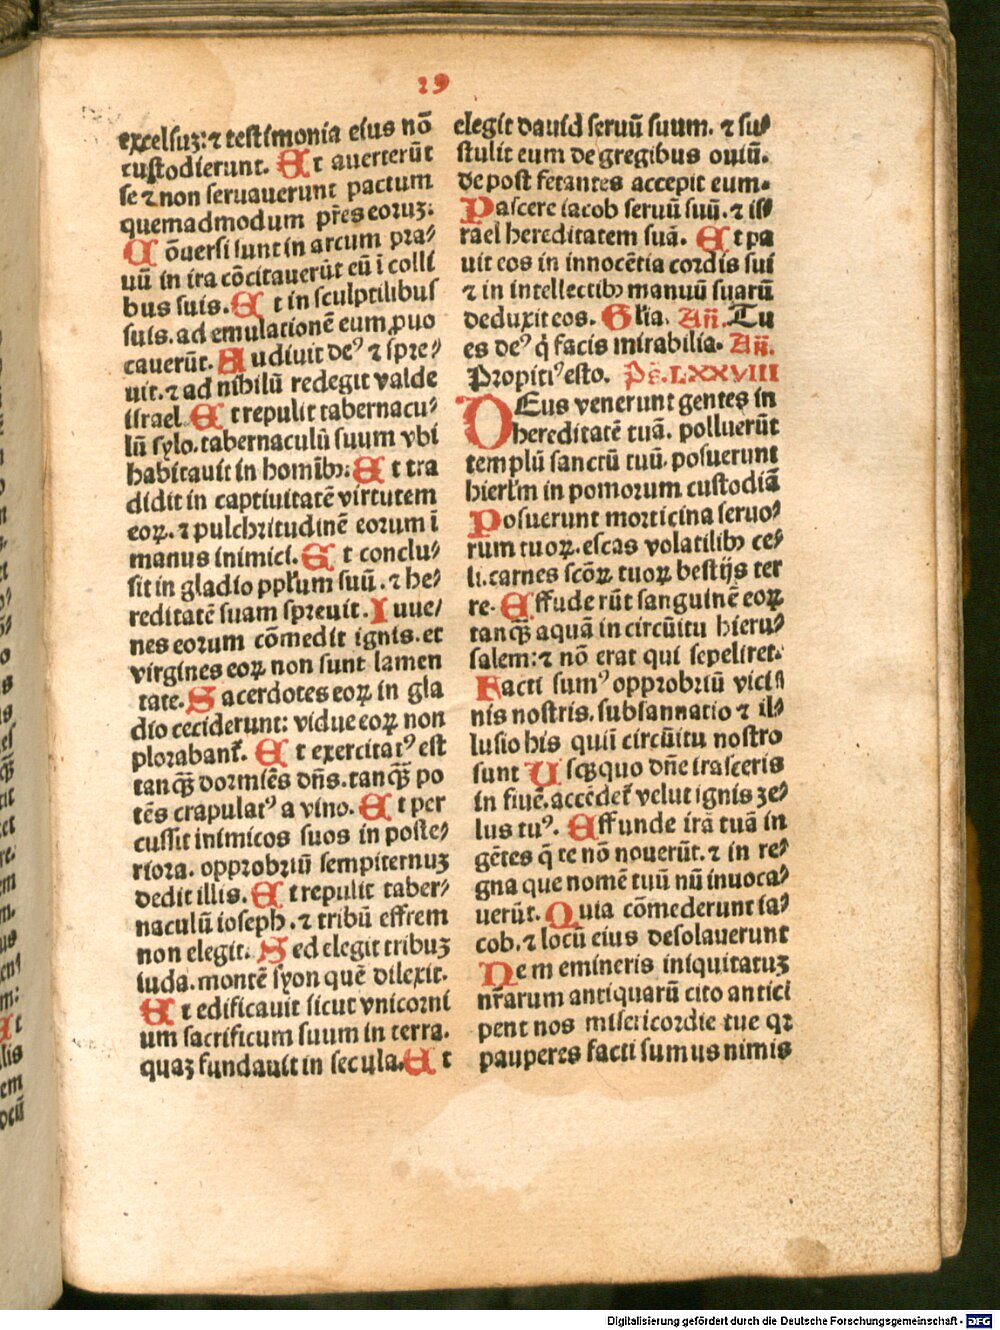 29
excelsuꝫ: ⁊ testimonia eius nō
custodierunt. Et auerterūt
se ⁊ non seruauerunt pactum
quemadmodum pr̄es eoruꝫ:
Cōuersi sunt in arcum pra⸗
uū in ira cōcitauerūt eū ī colli
bus suis. Et in sculptilibus
suis. ad emulationē eum ꝓuo
cauerūt. Audiuit deꝰ ⁊ spre⸗
uit. ⁊ ad nihilū redegit valde
israel. Et repulit tabernacu⸗
lū sylo. tabernaculū suum vbi
habitauit in homībꝰ: Et tra
didit in captiuitatē virtutem
eoꝝ. ⁊ pulchritudinē eorum ī
manus inimici. Et conclu⸗
sit in gladio ppl̄um suū. ⁊ he⸗
reditatē suam spreuit. Iuue⸗
nes eorum cōmedit ignis. et
virgines eoꝝ non sunt lamen
tate. Sacerdotes eoꝝ in gla
dio ceciderunt: vidue eoꝝ non
plorabant᷑. Et excitatꝰ est
tanq̄ꝫ dormiēs dn̄s. tanq̄ꝫ po
tēs crapulatꝰ a vino. Et per
cussit inimicos suos in poste⸗
riora. opprobriū sempiternuꝫ
dedit illis. Et repulit taber⸗
naculū ioseph. ⁊ tribū effrem
non elegit. Sed elegit tribuꝫ
iuda. montē syon quē dilexit.
Et edificauit sicut vnicorni
um sacrificum suum in terra.
quaꝫ fundauit in secula. Et
elegit dauid seruū suum. ⁊ su⸗
stulit eum de gregibus ouiū.
de post fetantes accepit eum.
Pascere iacob seruū suū. ⁊ is⸗
rael hereditatem suā. Et pa
uit eos in innocētia cordis sui
⁊ in intellectibꝰ manuū suarū
deduxit eos. Gl̄ia. Añ. Tu
es deꝰ q̄ facis mirabilia. Añ.
Propitiꝰ esto. Ps̄. LXXVIII
DEus venerunt gentes in
hereditatē tuā. polluerūt
templū sanctū tuū. posuerunt
hierl̄m in pomorum custodiā
Posuerunt morticina seruo⸗
rum tuoꝝ. escas volatilibꝰ ce⸗
li. carnes scōꝝ tuoꝝ bestijs ter
re. Effuderūt sanguinē eoꝝ
tanq̄ꝫ aquā in circūitu hieru⸗
salem: ⁊ nō erat qui sepeliret.
Facti sumꝰ opprobriū vici⸗
nis nostris. subsannatio ⁊ il⸗
lusio his qui ī circūitu nostro
sunt Usqꝫquo dn̄e irasceris
in finē. accēdet᷑ velut ignis ze⸗
lus tuꝰ. Effunde irā tuā in
gētes q̄ te nō nouerūt. ⁊ in re⸗
gna que nomē tuū nū inuoca⸗
uerūt. Quia cōmederunt ia⸗
cob. ⁊ locū eius desolauerunt
Ne memineris iniquitatuꝫ
nr̄arum antiquarū cito antici
pent nos misericordie tue qꝛ
pauperes facti sumus nimis
Digitalisierung gefördert durch die Deutsche Forschungsgemeinschaft - DFG